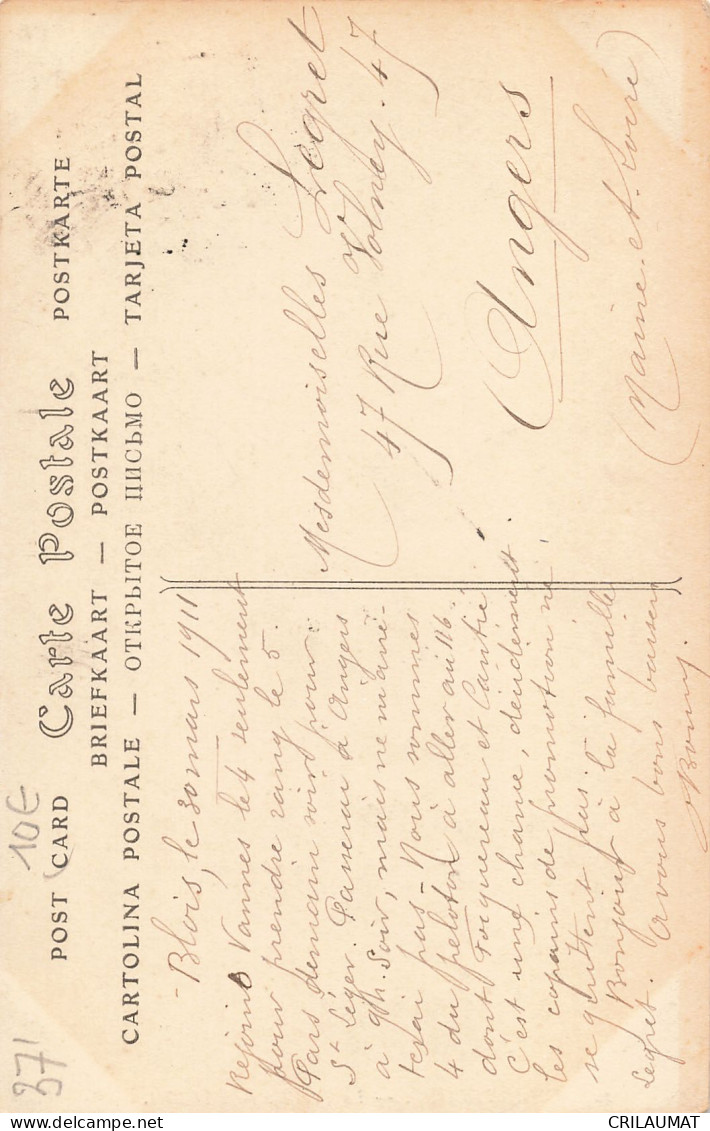 POST CARD Carte Postale POSTKARTE
BRIEFKAART — POSTKAART
CARTOLINA POSTALE — ОТКРЫТОЕ ПИСЬМО — TARJETA POSTAL
10€
37
- Blois, le 30 mars 1911
Rejoins Vannes le 4 seulement
pour prendre rang le 5.
Pars demain soir pour
St Léger. Passerai à Angers
à 9h. soir, mais ne m'arrê-
terai pas - Nous sommes
4 du peloton à aller au 116.
dont et
C'est une chance,
les copains de promotion ne
se quittent pas.
Bonjour à la famille
Legret. A vous bons baisers
Mesdemoiselles Legret
47 Rue Volney. 47
Angers
(Maine-et-Loire)
CRILAUMAT